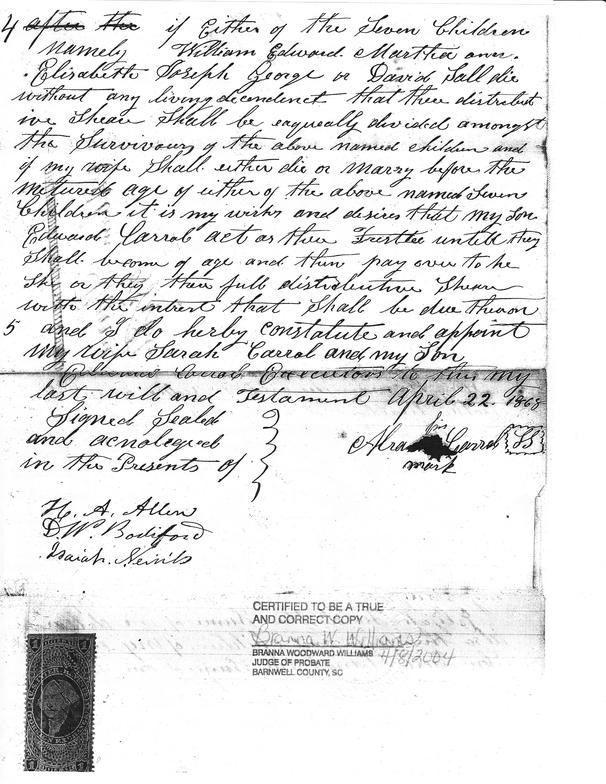 4 after the if Either of the Seven Children
namely William Edward. Martha ann.
Elizabeth Joseph George or David Sall die
without any living decendenct that thee distribut
ive Sheau Shall be eaqueally divided amongst
the Survivours of the above named children and
if my wife Shall either die or Marry before the
metured age of either of the above named Seven
Children it is my wish and desires that my Son
Edward Carrol act as thee Trustee untill they
Shall become of age and then pay over to he
She or they thee full distributive Sheau
with the intrest that Shall be due theron
5 and I do herby constatute and appoint
my wife Sarah Carrol and my Son
Edward Carrol Executors to this my
last will and Testament April 22. 1868
Signed Sealed
and acnoleged
in the Presents of
his
Abra Carrol LS
mark
H. A. Allen
D. W. Bodiford
Isaiah Nevils
CERTIFIED TO BE A TRUE
AND CORRECT COPY
Branna W. Williams
BRANNA WOODWARD WILLIAMS 4/8/2004
JUDGE OF PROBATE
BARNWELL COUNTY, SC